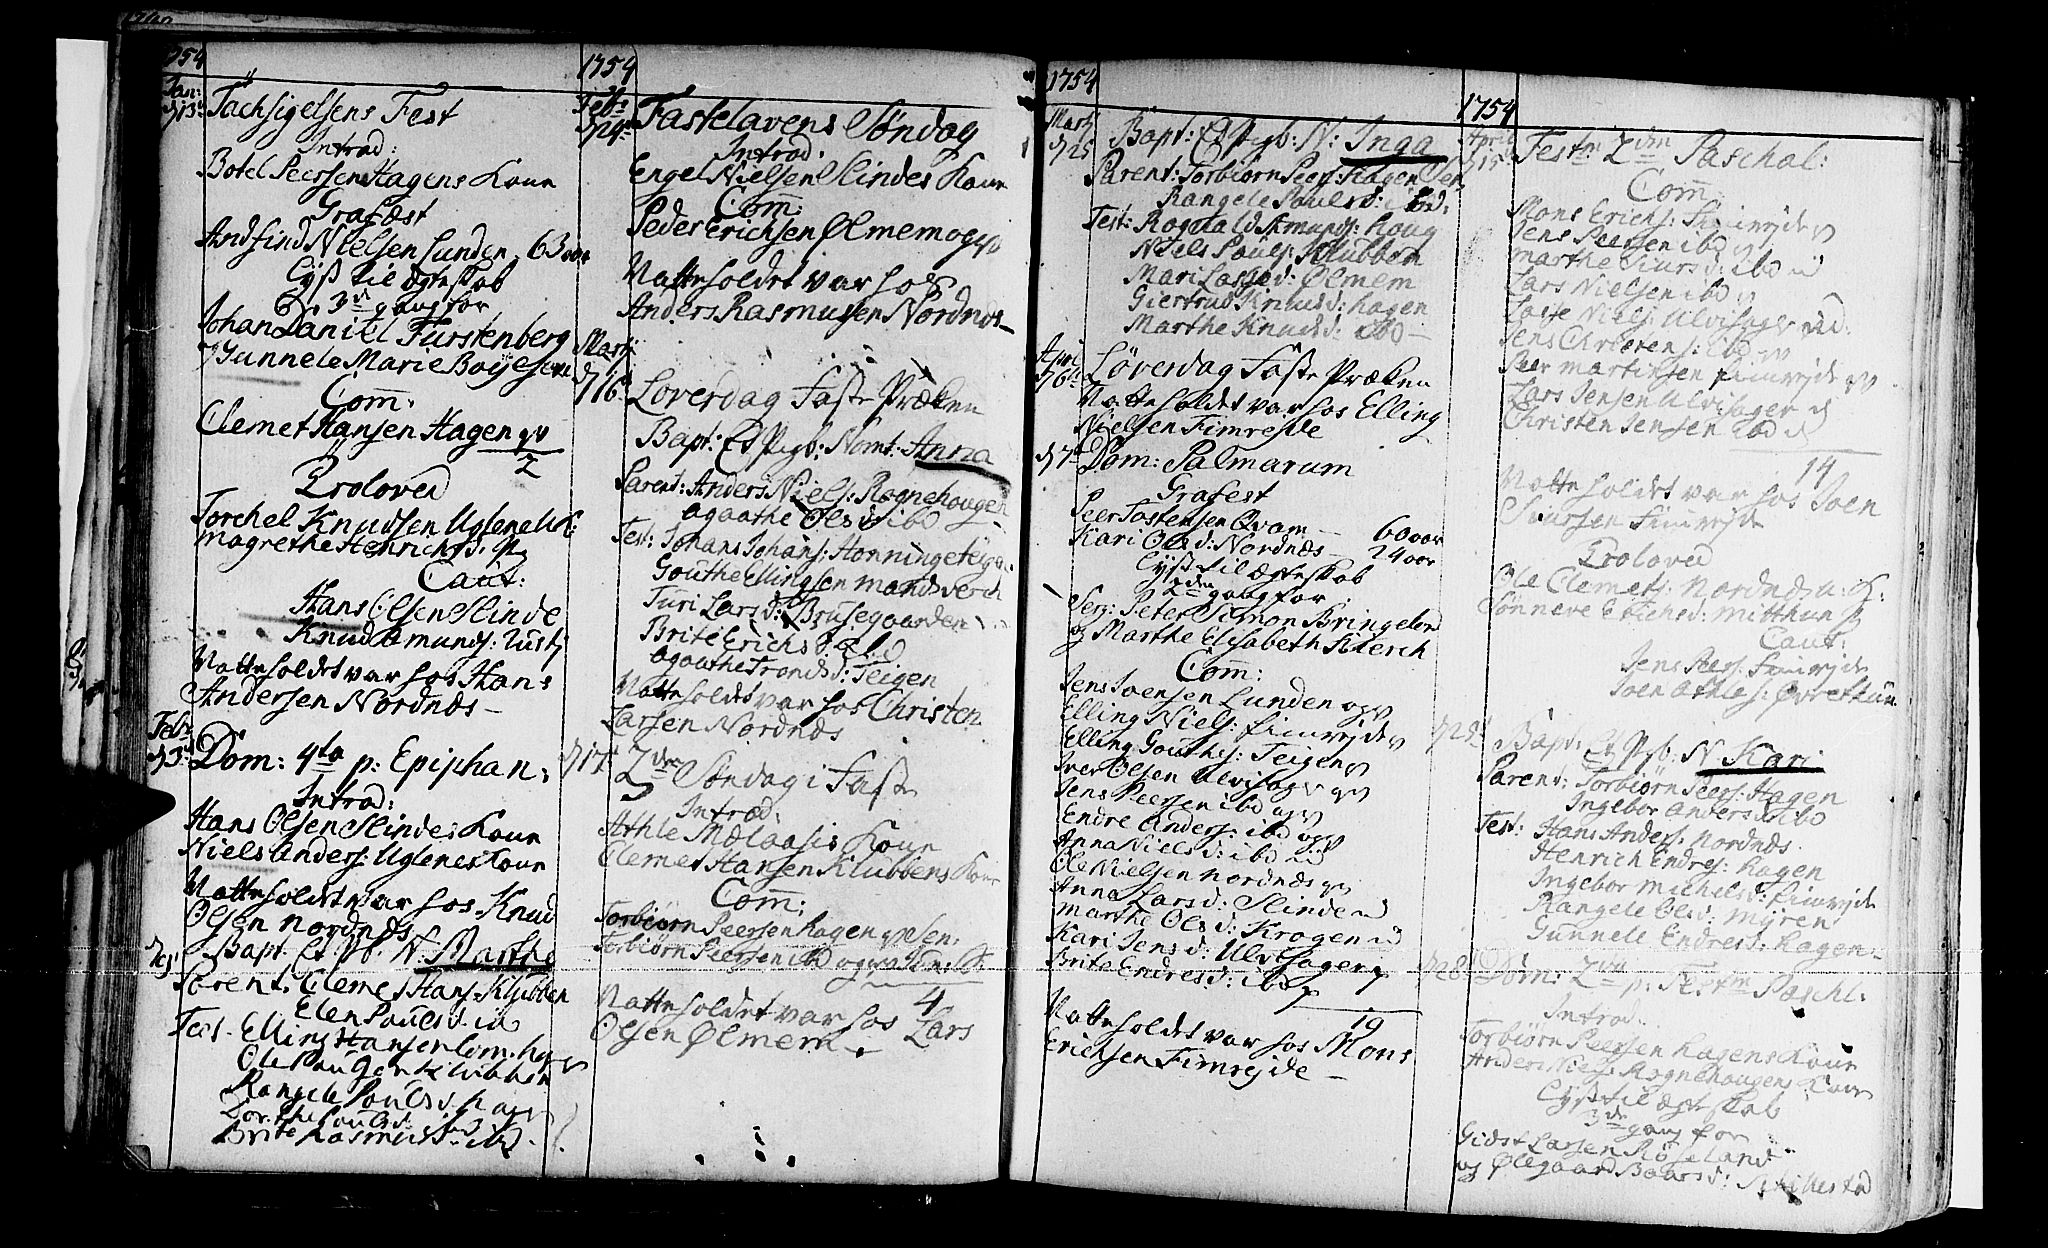 1754
Jan:
d 13
Tachsigelsens Fest
Introd:
Botel Peersen Hagens Kone
Grafæst
Andfind Nielsen Lunden 63 aar
Lyst til ægteskab
3de gang for
Johan Daniel Furstenberg
og Gunnele Marie
Com:
Clemet Hansen Hagen
2
Troloved
Torchel Knudsen Uglene
Magrethe Henrichsd:
Caut:
Hans Olsen Slinde
Knud Amunds:
Natteholdet var hos Hans
Andersen Nordnæs
Febr:
d 3
Dom: 4ta p: Epiphan:
Introd:
Hans Olsen Slindes Kone
Niels Anders: Uglenes Kone
Natteholdet var hos Knud
Olsen Nordnæs
Bapt: Et Pb: N. Marthe
Parent: Clemet Hans: Klubben
Elen Poulsd:
Test. Elling Hansen
Ole Klubben
Rangele Poulsd:
Poulsd:
Brite Rasmusd: ibd
1754
Febr:
d 24
Fastelavens Søndag
Introd:
Engel Nielsen Slindes Kone
Com:
Peder Erichsen Ølmem
Natteholdet var hos
Anders Rasmusen Nordnæs
Marti
d 16
Løverdag Faste Præken
Bapt: Et Pigb: Nomt: Anna
Parent: Anders Niels: Rognehougen
Agaathe Olsd: ibd
Test: Johans Johans: Honningeteigen
Gouthe Ellingsen
Turi Larsd: Brusegaarden
Brite Erichsd:
Agaathe Trondsd: Teigen
Natteholdet var hos Christen
Larsen Nordnæs
d 17
2den Søndag i Faste
Introd:
Athle Mælaasis Kone
Clemet Hansen Klubbens Kone
Com:
Torbiørn Peersen Hagen
Torbiørn Peersen ibd
4
Natteholdet var hos Lars
Olsen Ølmem
1754
Marti
d 25
Bapt: Et Pigb: N: Inga
Parent: Torbiørn Peers: Hagen
Rangele Paulsd: ibd:
Test: Rognald Amunds: Houg
Niels Pouls: Klubben
Mari Lassed: Ølmem
Giertrud Knudsd: Hagen
Marthe Knudsd: ibd
Apri
d 6
Løverdag Faste Præken
Natteholdet var hos Elling
Nielsen Fimrejde
d 7
Dom: Palmarum
Grafest
Peer Tostensen Qvam 60 aar
Kari Olsd: Nordnæs 24 aar
Lyst til ægteskab
2den gang for
Serg: Peter Simon
og Marthe Elisabeth
Com:
Jens Joensen Lunden
Elling Niels: Fimrejde
Elling Gouthes: Teigen
Iver Olsen Ulvisager
Jens Peersen ibd
Endre Anders: ibd
Anna Nielsd: ibd
Ole Nielsen Nordnæs
Anna Larsd: Slinde
Marthe Olsd: Krogen
Kari Jensd: Ulvisager
Brite Endresd: ibd
19
Natteholdet var hos Mons
Erichsen Fimrejde
1754
April
d 15
Festm 2dm Paschal:
Com:
Mons Erichs: Fimrejde
Jens Peersen ibd
Marthe Siursd: ibd
Lars Nielsen ibd
Lasse Niels: Ulvisager
Jens Christens: ibd
Peer Martinsen Fimrejde
Lars Jensen Ulvisager
Christen Jensen ibd
14
Natteholdet var hos Joen
Siursen Fimrejde
Troloved
Ole Clemets: Nordnæs u: K:
Sønneve Erichsd: Mitthun
Caut:
Jens Peers: Fimrejde
Joen Athles: Øvrethun
d 25
Bapt: Et Pgb: N Kari
Parent: Torbiørn Peers: Hagen
Ingebor Andersd: ibd
Test: Hans Anders: Nordnæs
Henrich Endres: Hagen
Ingebor Michelsd: Fimrejde
Rangele Olsd: Myren
Gunnele Endresd: Hagen
d 28
Dom: 2da p: Festm Paschl:
Introd:
Torbiørn Peersen Hagens Kone
Anders Niels: Rognehougens Kone
Lyst til ægteskab
3de gang for
Giest Larsen Røseland
og Ølegaard Baarsd: